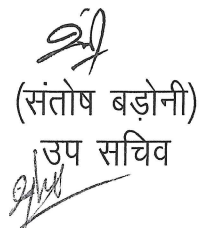 (संतोष बड़ोनी)
उप सचिव